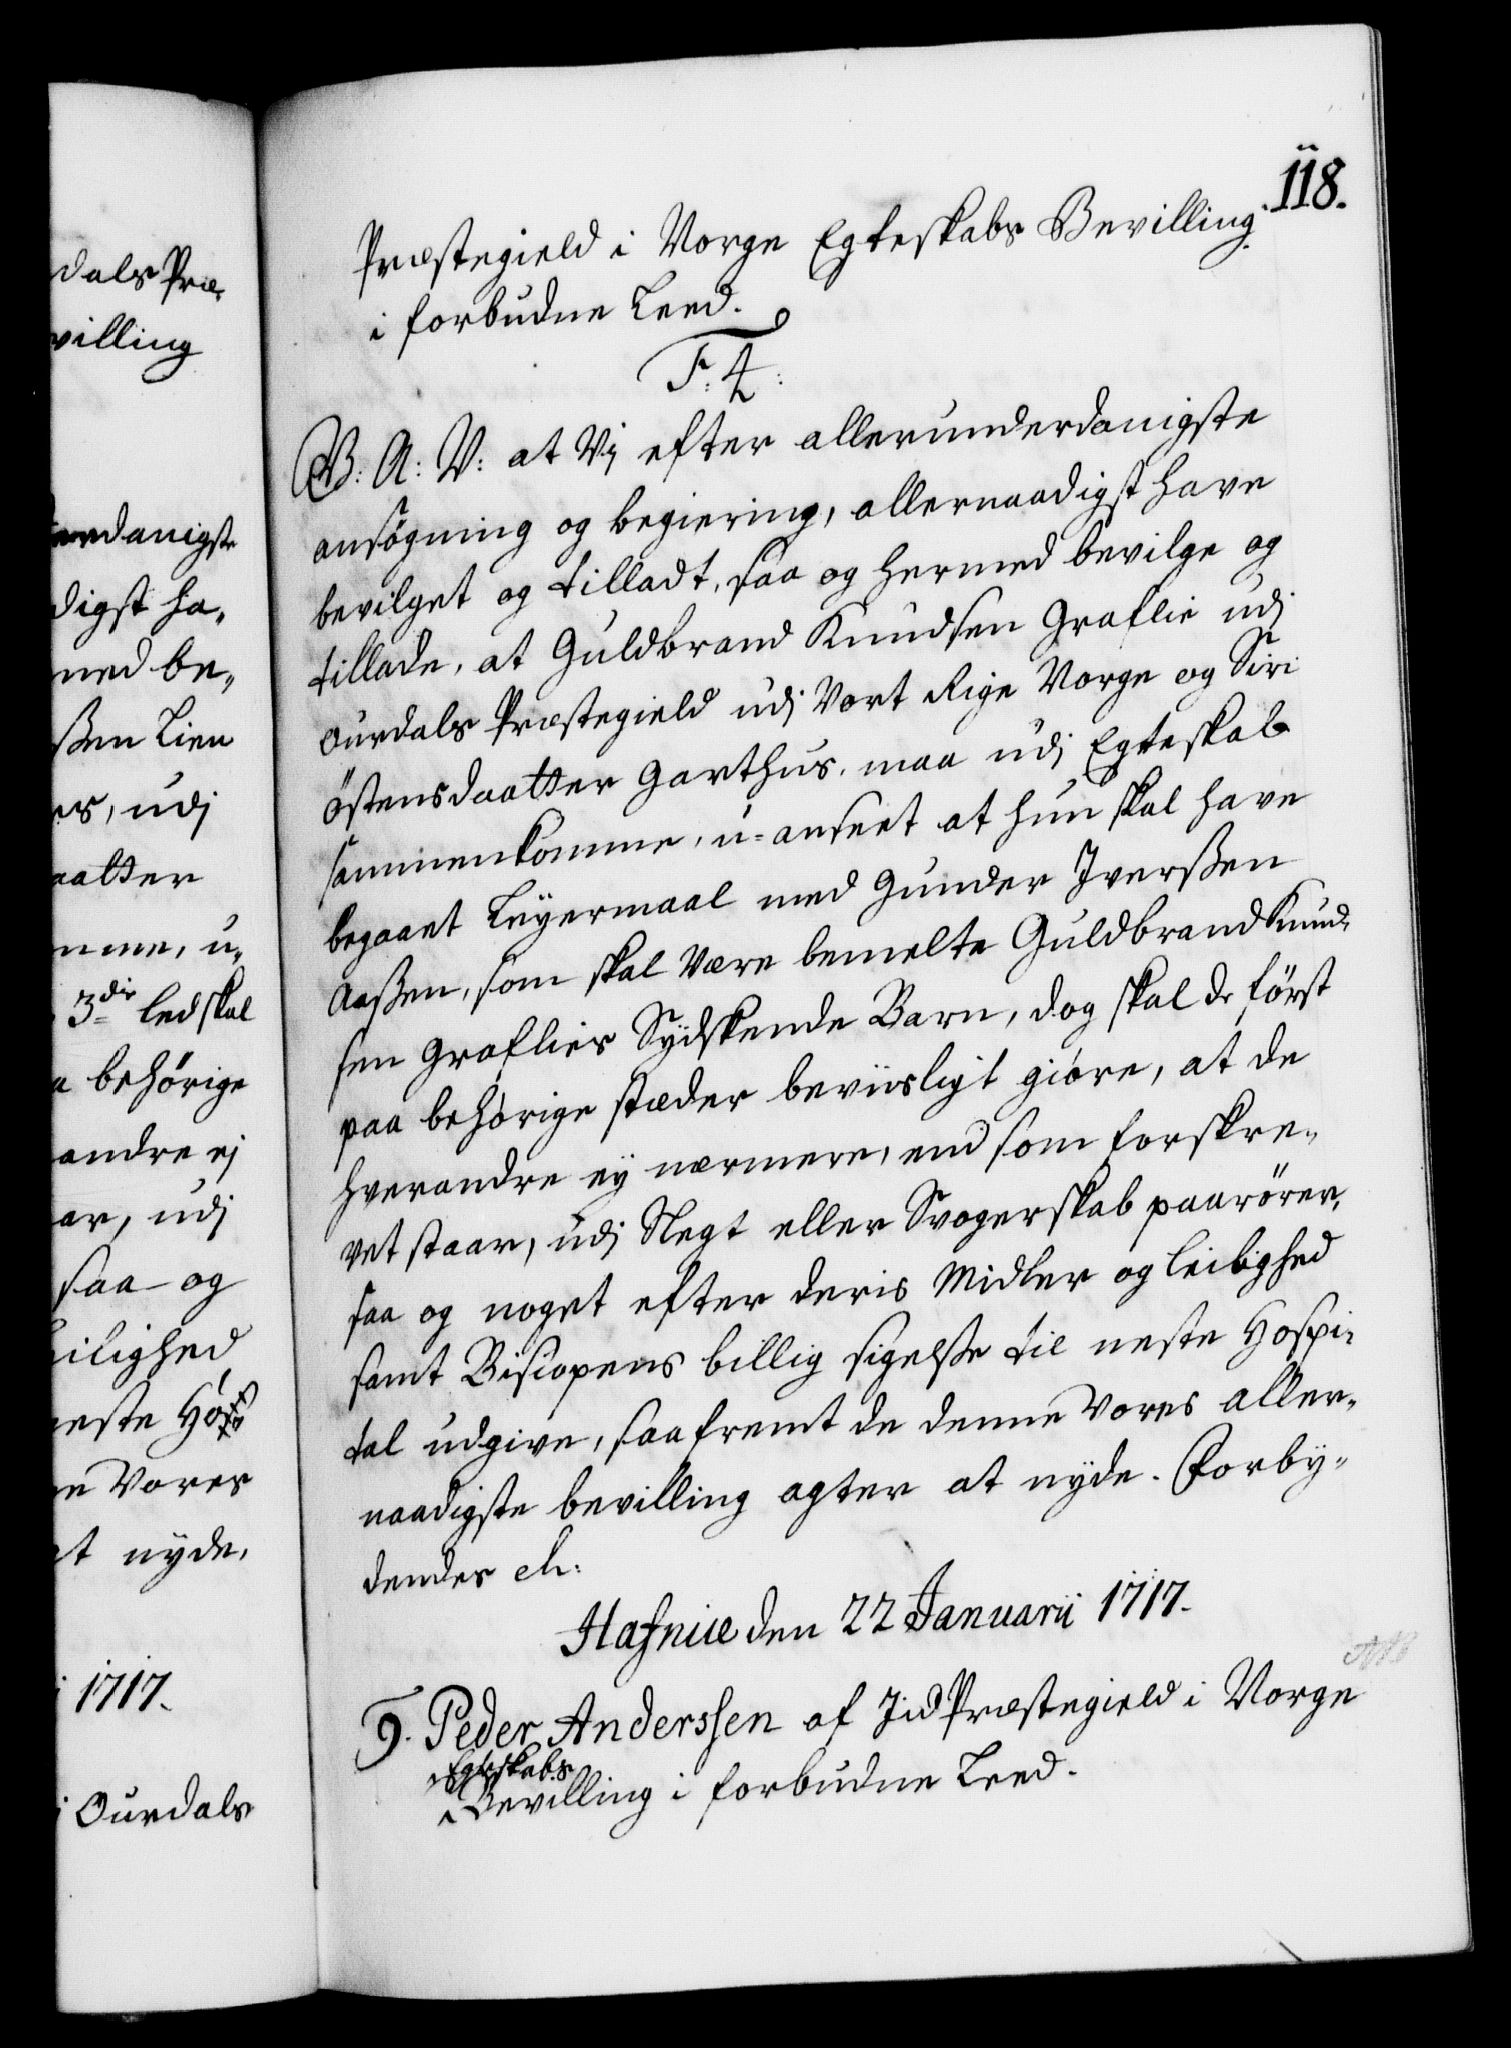 dals Præ-
villing
erdanigste
digst ha-
med be-
ßen Lien
es, udj
aatter
mme, u-
3die led skal
a behörige
andre ej
ar, udj
saa og
eilighed
neste
e Vores
at nyde.
1717.
Ourdals
118.
Præstegield i Norge Egteskabs Bevilling
i forbudne Leed.
F: 4:
V: A: V: at Vj efter allerunderdanigste
ansøgning og begiering, allernaadigst have
bevilget og tilladt, saa og hermed bevilge og
tillade, at Guldbrand Knudsen Graflie udj
Ourdals Præstegield udj Vort Rige Norge og Siri
Östensdaatter Garthus, maa udj Egteskab
sammenkomme, u-anseet at hun skal have
begaaet Leyermaal med Gunder Iverßen
Aaßen, som skal være bemelte Guldbrand Knud-
sen Graflies Sydskende Barn, dog skal de först
paa behörige stæder beviisligt giöre, at de
hverandre ey nærmere, end som forskre-
vet staar, udj Slegt eller Svogerskab paarörer,
saa og noget efter deris Midler og leilighed
samt Biscopens billig sigelse til neste Hospi-
tal udgive, saafremt de denne Vores aller-
naadigste bevilling agter at nyde. Forby-
dendes etc:
Hafniæ den 22 Januarii 1717.
9. Peder Anderssen af Jid Præstegield i Norge
Egteskabs
Bevilling i forbudne Leed.